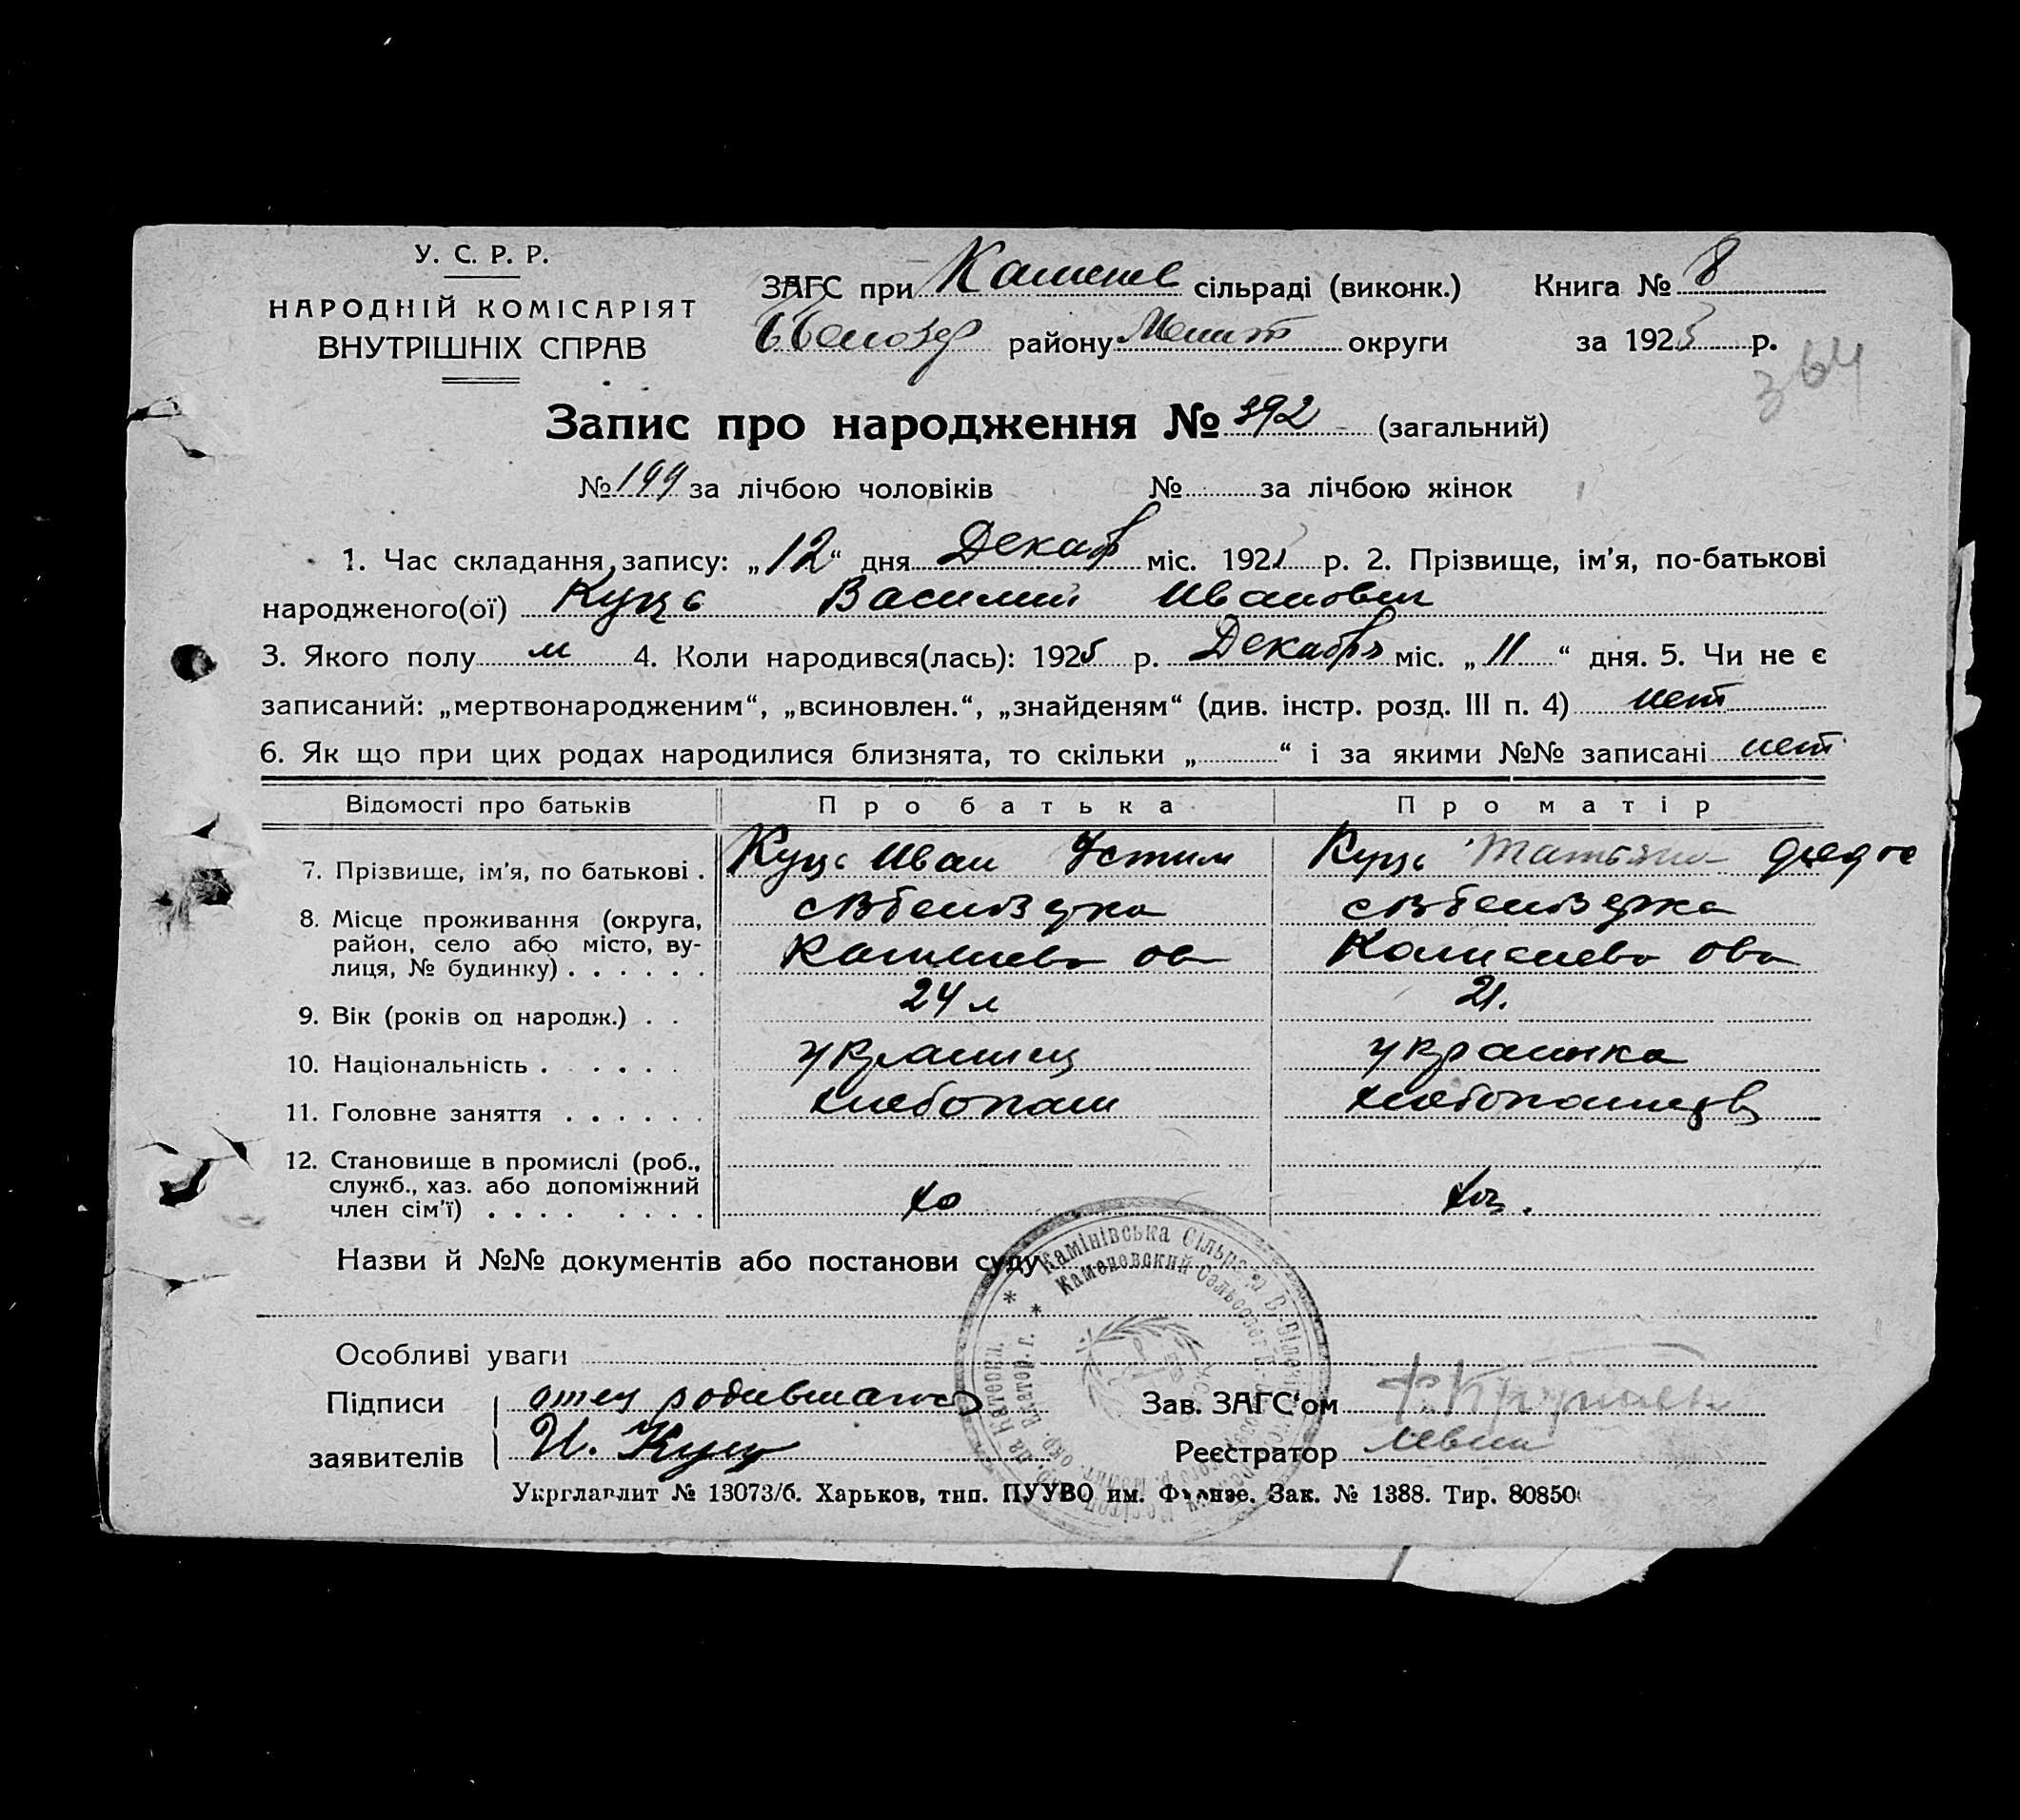 У. С. Р. Р.
НАРОДНІЙ КОМІСАРІЯТ
ВНУТРІШНІХ СПРАВ
ЗАГС при Каменев сільраді (виконк.) Книга № 8
району Мелит округи за 1925 р.
364
Запис про народження № 392 (загальний)
№ 199 за лічбою чоловіків № за лічбою жінок
1. Час складання запису: „12“ дня Декаб міс. 192 р. 2. Прізвище, ім'я, по-батькові
народженого(ої) Куць Василий Иванович
3. Якого полу м 4. Коли народився(лась): 1925 р. Декабря міс. „11“ дня. 5. Чи не є
записаний: „мертвонародженим“, „всиновлен.“, „знайденям“ (див. інстр. розд. III п. 4) нет
6. Як що при цих родах народилися близнята, то скільки „ “ і за якими №№ записані нет
Відомості про батьків Про батька Про матір
7. Прізвище, ім'я, по батькові . Куць Иван Устим Куць Татьяна Федо
8. Місце проживання (округа,
район, село або місто, ву-
лиця, № будинку) . . . . . .
9. Вік (років од народж.) . . 24 л 21.
10. Національність . . . . . украинец украинка
11. Головне заняття . . . . . . хлебопаш
12. Становище в промислі (роб.,
служб., хаз. або допоміжний
член сім'ї) . . . . . . . . хо
Назви й №№ документів або постанови суду
Особливі уваги
Підписи отец родившагось Зав. ЗАГС'ом
заявителів И. Куць Реєстратор
Камінівська Сільрада
Каменовский Сельсовет
Укрглавлит № 13073/б. Харьков, тип. ПУУВО им. Фрунзе. Зак. № 1388. Тир. 80850